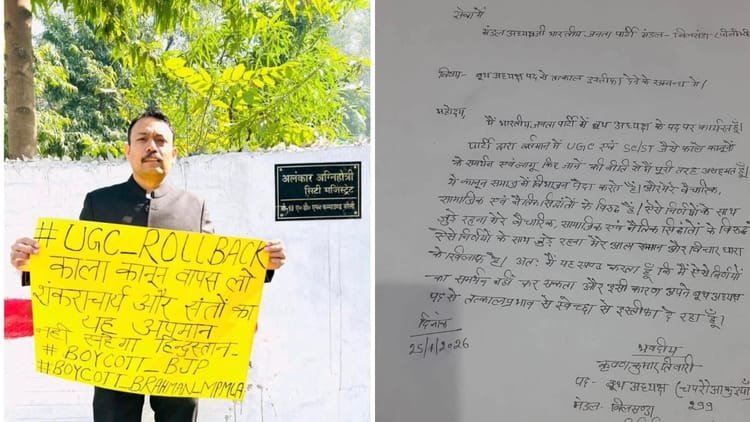 अलंकार अग्निहोत्री
सिटी मजिस्ट्रेट
#UGC_ROLLBACK
काला कानून वापस लो
शंकराचार्य और संतों का
यह अपमान
नहीं सहेगा हिन्दुस्तान-
#BOYCOTT_BJP
#BOYCOTT_BRAHMAN_MPMLA
सेवा में
मंडल अध्यक्ष जी भारतीय जनता पार्टी मंडल- बिलसंडा
विषय- बूथ अध्यक्ष पद से तत्काल इस्तीफा देने के सम्बन्ध में।
महोदय,
मैं भारतीय जनता पार्टी में बूथ अध्यक्ष के पद पर कार्यरत हूँ।
पार्टी द्वारा वर्तमान में UGC एवं SC/ST जैसे काले कानूनों
के समर्थन एवं लागू किए जाने की नीति से मैं पूरी तरह असहमत हूँ।
ये कानून समाज में विभाजन पैदा करते हैं। और मेरे वैचारिक,
सामाजिक एवं नैतिक सिद्धांतों के विरुद्ध हैं। ऐसे निर्णयों के साथ
जुड़े रहना मेरे वैचारिक, सामाजिक एवं नैतिक सिद्धांतों के विरुद्ध
ऐसे निर्णयों के साथ जुड़े रहना मेरे आत्म सम्मान और विचार धारा
के खिलाफ है। अतः मैं यह स्पष्ट करता हूँ कि मैं ऐसे निर्णयों
का समर्थन नहीं कर सकता और इसी कारण अपने बूथ अध्यक्ष
पद से तत्काल प्रभाव से स्वेच्छा से इस्तीफा दे रहा हूँ।
दिनांक
25/1/2026
भवदीय
कृष्ण कुमार तिवारी
पद- बूथ अध्यक्ष
मंडल- बिलसण्डा 299